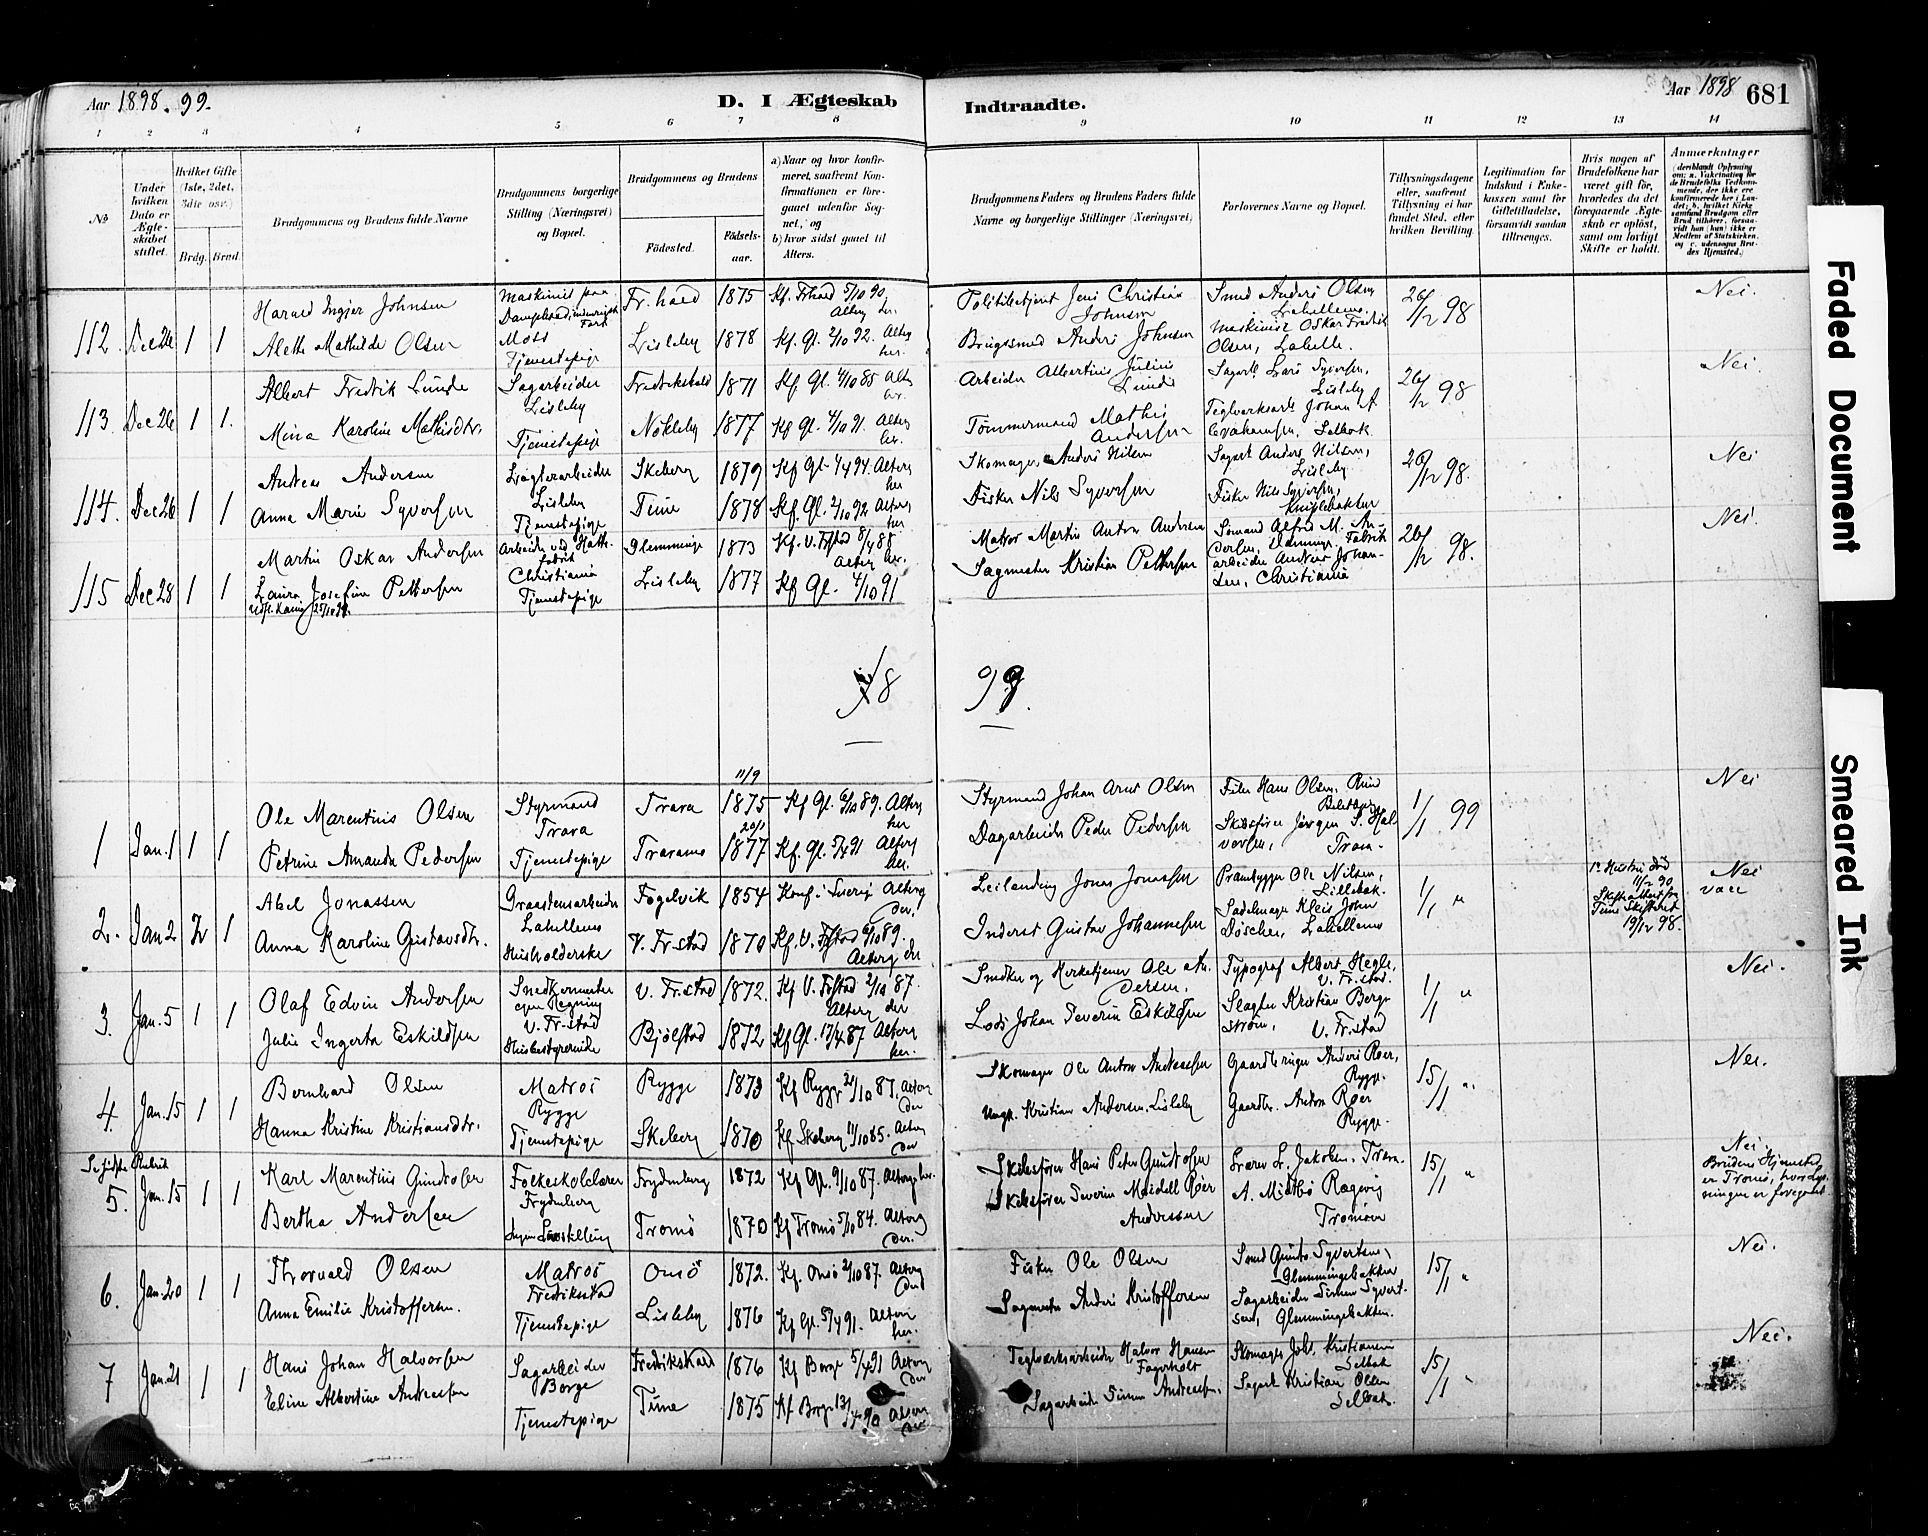 Aar 1898. 99.
D. I Ægteskab
Indtraadte.
Aar 1898 681
1 2 3 4 5 6 7 8 9 10 11 12 13 14
No
Under hvilken Dato er Ægteskabet stiftet.
Hvilket Gifte (1ste, 2det, 3die osv.)
Brdg. Brud.
Brudgommens og Brudens fulde Navne
Brudgommens borgerlige Stilling (Næringsvei) og Bopæl.
Brudgommens og Brudens
Födested.
Födselsaar.
a) Naar og hvor konfirmeret, saafremt Konfirmationen er foregaaet udenfor Sognet, og
b) hvor sidst gaaet til Alters.
Brudgommens Faders og Brudens Faders fulde Navne og borgerlige Stillinger (Næringsvei)
Forlovernes Navne og Bopæl.
Tillysningsdagene eller, saafremt Tillysning ei har fundet Sted, efter hvilken Bevilling.
Legitimation for Indskud i Enkekassen samt for Giftetilladelse, forsaavidt saadan tiltrænges.
Hvis nogen af Brudefolkene har været gift før, hvorledes da det foregaaende Ægteskab er opløst, samt om lovligt Skifte er holdt.
Anmerkninger
112. Dec 26 1 1
Harald Ingjer Johnsen
Fr.hald 1875 Kf. Frhald 5/10 90
Alethe Mathilde Olsen
Moss
Tjenestepige
Lisleby 1878 Kf. Gl. 2/10 92. Alters her.
Politibetjent Jens Christian Johnsen
Brugssmed Anders Johnsen
Smed Anders Olsen
Maskinist Oskar Fredrik Olsen, Labelle.
26/12 98
Nei.
113. Dec 26 1 1.
Albert Fredrik Lunde
Sagarbeider
Lisleby
Fredrikshald 1871 Kf. Gl. 4/10 85 Alters her.
Mina Karoline Mathisdtr.
Tjenestepige
Nökleby 1877 Kf Gl. 4/10 91. Alters her.
Arbeider Albertius Julius Lunde
Tømmermand Mathis Andersen
Sagarb. Lars Syversen, Lisleby
Teglverksarb. Johan A.
Selbak
26/12 98
Nei.
114. Dec 26 1 1
Andreas Andersen
Lisleby
Skeberg 1879 Kf Gl. 1/4 94. Alters her
Anna Marie Syversen
Tjenestepige
Tune 1878 Kf. Gl. 2/10 92 Alters her
Skomager Anders Nilsen
Fisker Nils Syversen
Sagarb Anders Nilsen, Lisleby
Fisker Nils Syversen,
26/12 98.
Nei
115 Dec 28 1 1
Martin Oskar Andersen
Arbeider ved Hatte-fabrik
Christiania
Glemminge 1873 Kf. V. Frstad 8/4 88 Alters her.
Laura Josefine Pettersen
Tjenestepige
Lisleby 1877 Kf Gl. 4/10 91
Matros Martin Anton Andersen
Sagmester Kristian Pettersen
Sømand Alfred M. Andersen,
Fabrikarbeider Andreas Johansen, Christiania
26/12 98.
Nei.
18 99.
1 Jan. 1 1 1
Ole Marentius Olsen
Styrmand
Trara
Trara 11/9 1875 Kf Gl. 6/10 89. Alters her
Petrine Amanda Pedersen
Tjenestepige
Traramo 20/1 1877 Kf. Gl. 5/4 91 Alters her.
Styrmand Johan Arnt Olsen
Dagarbeider Peder Pedersen
Filer Hans Olsen.
Skibsfører Jørgen S. Halvorsen, Trara.
1/1 99
Nei
2. Jan 2 2 1
Abel Jonassen
Graastensarbeider
Labellemo
Fogelvik 1854
Anna Karoline Gustavsdtr.
Husholderske
V. Fr.stad 1870 Kf. V. Frstad 6/10 89. Alters der
Leilending Jonas Jonassen
Inderst Gustav Johannesen
Prambygger Ole Nilsen, Lillebak.
Sadelmager Kleis John Döscher, Labellemo
1/1 "
1e Hustru død 11/2 90
19/12 98.
Nei
3. Jan. 5 1 1
Olaf Edvin Andersen
Snedkermester
egen Regning
V. Fr.stad
V. Fr.stad 1872. Kf V. Frstad 2/10 87. Alters der
Julie Ingerta Eskildsen
Husbestyrerinde
Bjölstad 1872 Kf Gl. 17/4 87 Alters her.
Snedker og Kirketjener Ole Andersen.
Lods Johan Severin Eskildsen
Typograf Albert Hegle, V. Fr.stad.
Slagter Kristian Bergström, V. Fr.stad
1/1 "
Nei.
4. Jan. 15 1 1
Bernhard Olsen
Matros
Rygge
Rygge 1873 Kf Rygge 2/10 87. Alters der
Hanna Kristine Kristiansdtr.
Tjenestepige
Skeberg 1870 Kf Skeberg 11/10 85. Alters der
Skomager Ole Anton Andreassen
Ungk. Kristian Andersen, Lisleby
Gaardbruger Anders Roer, Rygge.
Gaardbr. Anton Roer Rygge.
15/1 "
Nei.
Se sidste Rubrik
5. Jan. 15 1 1
Karl Marentius Gundrosen
Folkeskolelærer
Frydenberg
Frydenberg 1872 Kf Gl. 9/10 87. Alters her.
Bertha Andersen
Ingen Særstilling
Tromö 1870 Kf Tromö 5/10 84. Alters der.
Skibsfører Hans Peter Gundrosen
Skibsfører Severin Meidell Roer Anderssen
Lærer L. Jakobsen. Trara.
A. Midtbö Ragevig Tromöen
15/1 "
Nei.
Brudens Hjemsted er Tromö, hvor lysningen er foregaaet.
6. Jan. 20 1 1
Thorvald Olsen
Matros
Fredriksstad
Onsö 1872. Kf. Onsö 2/10 87. Alters der
Anna Emilie Kristoffersen.
Tjenestepige
Lisleby 1876 Kf Gl. 5/4 91. Alters her.
Fisker Ole Olsen
Sagmester Anders Kristoffersen
Smed Gundro Syvertsen, Glemmingebakken
Sagarbeider Simen Syvertsen, Glemmingebakken.
15/1 "
Nei.
7 Jan. 21 1 1
Hans Johan Halvorsen
Sagarbeider
Borge
Fredrikstad 1876 Kf Borge 5/4 91 Alters der
Eline Albertine Andreassen
Tjenestepige
Tune 1875 Kf Borge 13/4 90 Alters der
Teglverksarbeider Halvor Hansen Fagerholt
Sagarbeider Simen Andreassen.
Skomager Johs. Kristiansen Selbak
Sagarb Kristian Olsen Selbak.
15/1 "
Nei.
Faded Document
Smeared Ink